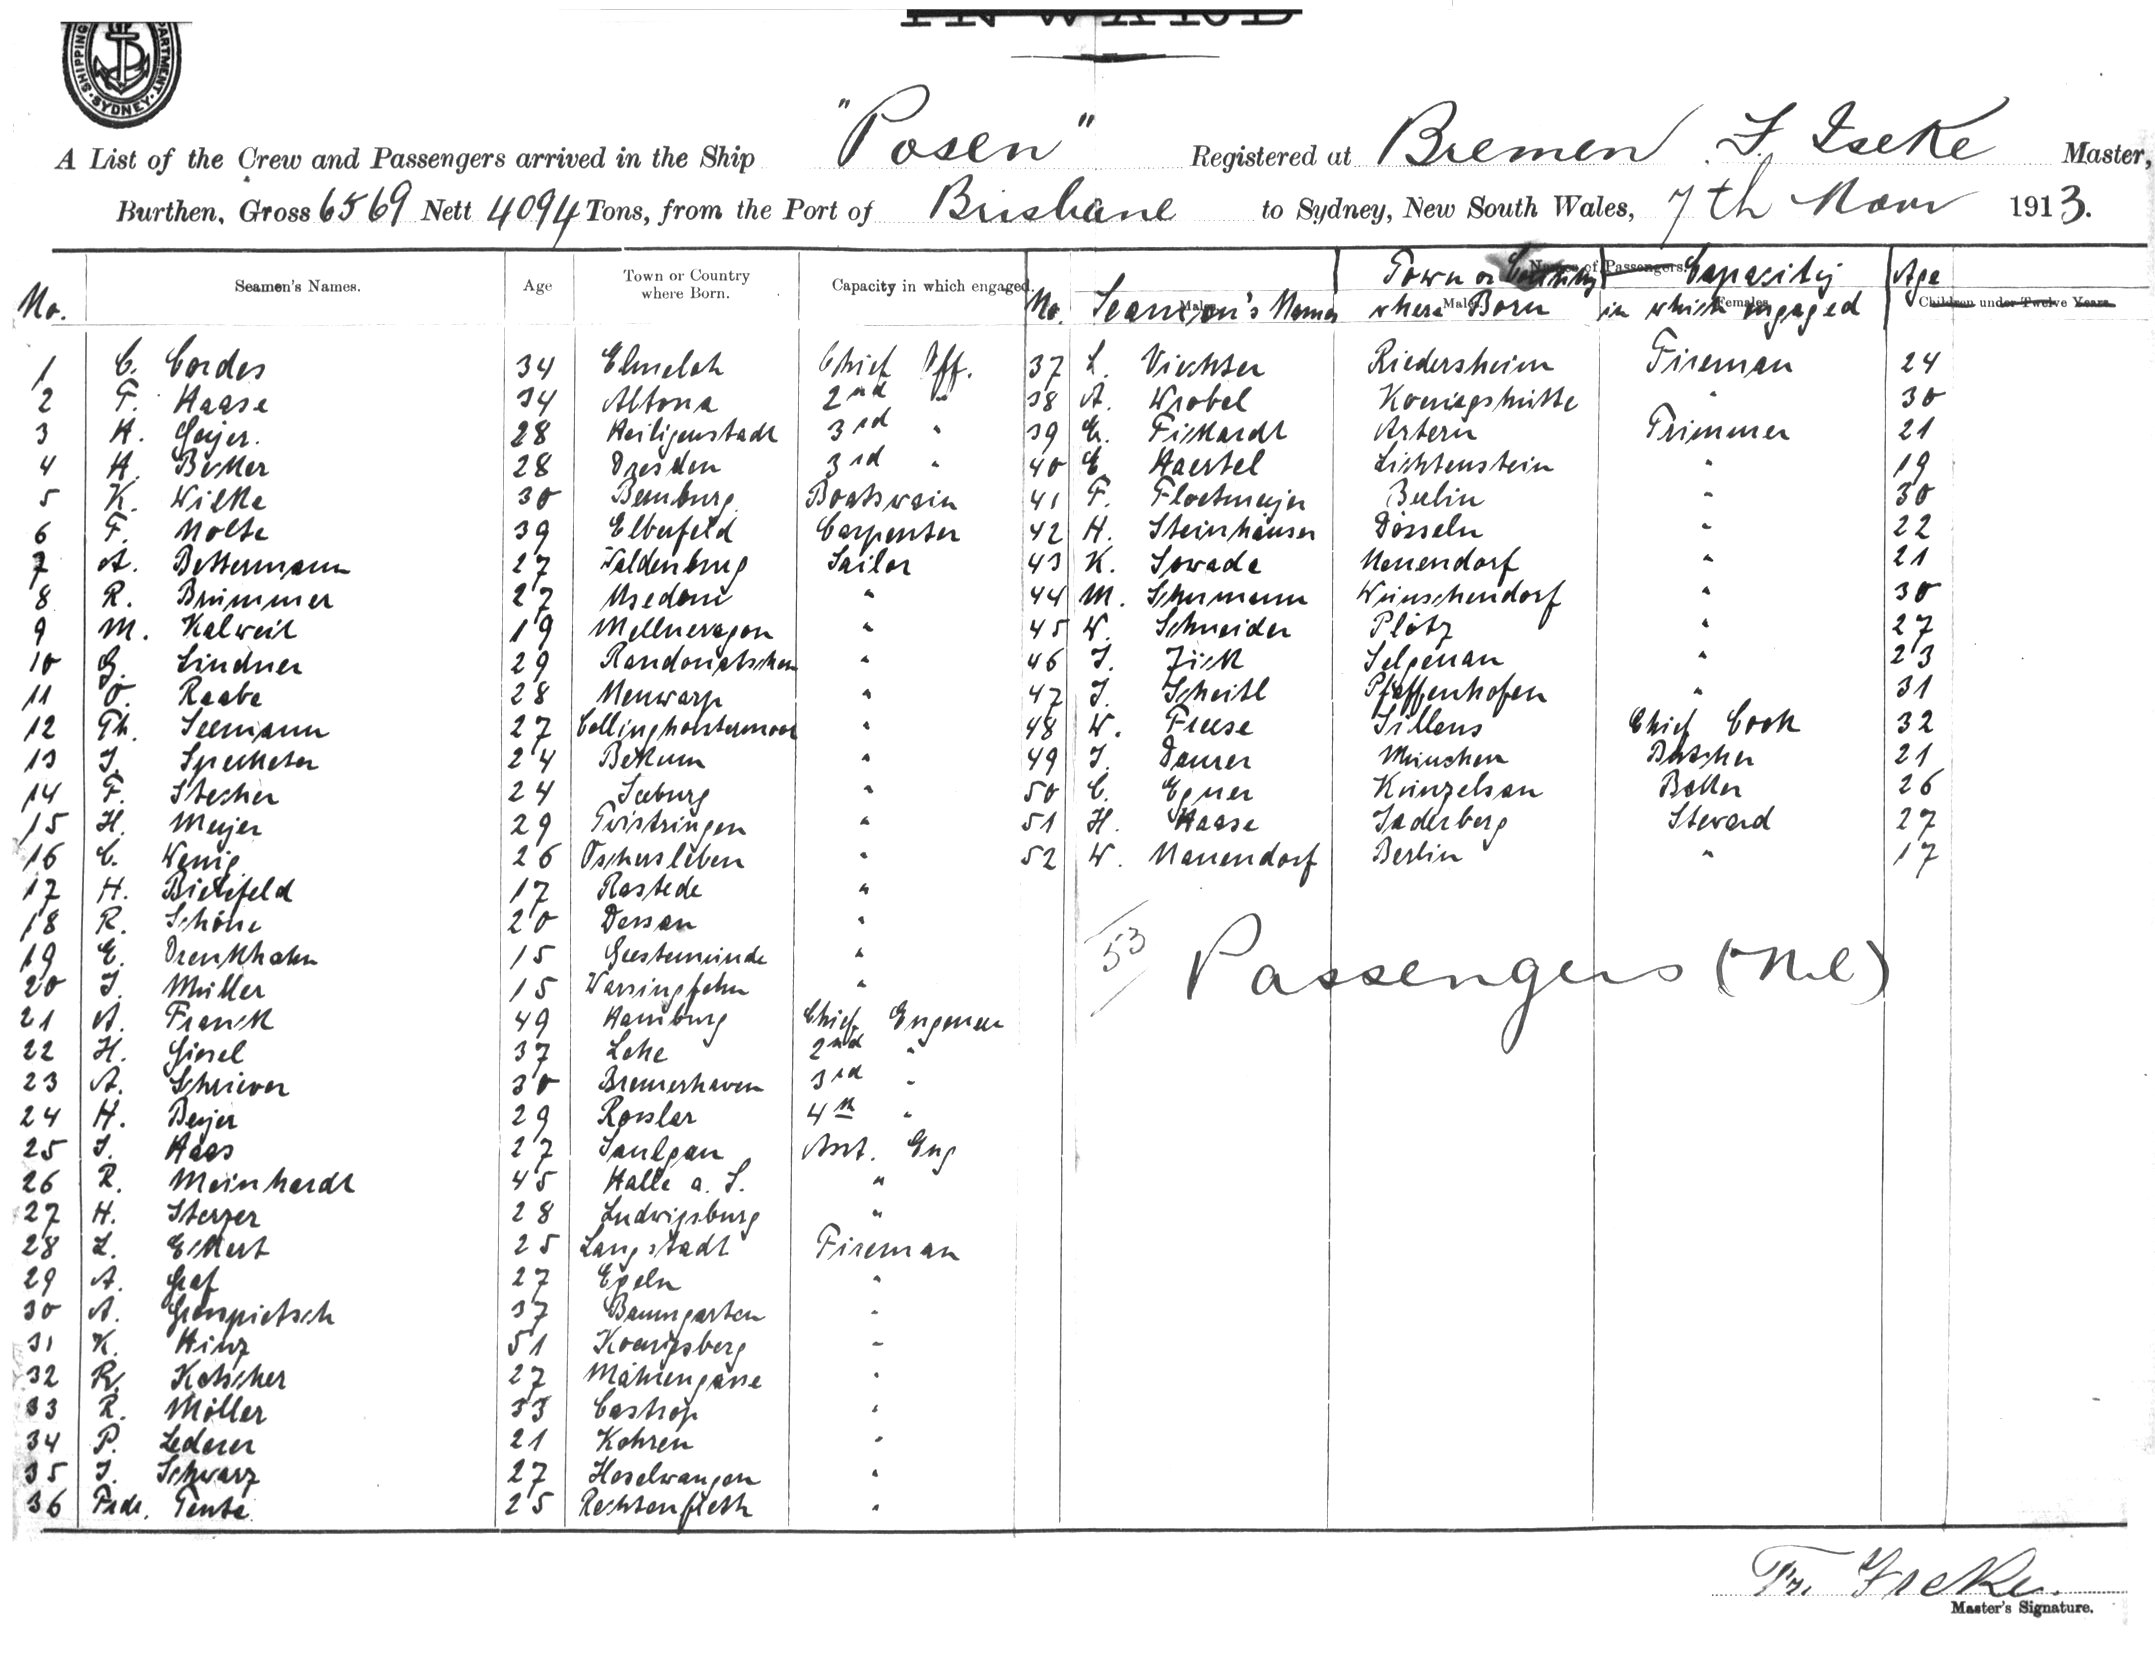 SHIPPING DEPARTMENT SYDNEY
INWARD
A List of the Crew and Passengers arrived in the Ship "Posen" Registered at Bremen F. Iseke Master,
Burthen, Gross 6569 Nett 4094 Tons, from the Port of Brisbane to Sydney, New South Wales, 7th Nov 1913.
No. Seamen's Names. Age Town or Country where Born. Capacity in which engaged.
1 C. Cordes 34 Chief Off.
2 F. Haase 34 Altona 2nd "
3 H. Geijer. 28 Heiligenstadt 3rd "
4 H. Bekker 28 Dresden 3rd "
5 K. Wilke 30 Bernburg Boatswain
6 F. Nolte 39 Elberfeld Carpenter
7 A. Bettermann 27 Waldenburg Sailor
8 R. Brümmer 27 Usedom "
9 M. Kalweit 19 "
10 G. Lindner 29 "
11 O. Raabe 28 Neuwarp "
12 Th. Seemann 27 Collinghorstermoor "
13 J. 24 "
14 F. Stecher 24 Seeburg "
15 H. Meijer 29 Twistringen "
16 C. Wenig 26 Oschersleben "
17 H. Bielefeld 17 Rastede "
18 R. Schöne 20 Dessau "
19 E. Drenkhahn 15 Geestemünde "
20 J. Müller 15 Warsingfehn "
21 A. Franck 49 Hamburg Chief Engeneer
22 H. Giesel 37 Lehe 2nd "
23 A. Schriever 30 Bremerhaven 3rd "
24 H. Beijer 29 Rosslar 4th "
25 J. Haas 27 Saulgau Asst. Eng
26 R. Meinhardt 45 Halle a. S. "
27 H. Sterzer 28 Ludwigsburg "
28 L. Eckert 25 Langstadt Fireman
29 A. Graf 27 Egeln "
30 A. 37 Baumgarten "
31 K. Hinz 51 Koenigsberg "
32 R. Kotscher 27 Mährengasse "
33 R. Möller 33 Castrop "
34 P. Lederer 21 Kohren "
35 J. Schwarz 27 Hoselwangen "
36 Fede. Tente 25 Rechtenfleth "
Names of Passengers.
Males Males Females Children under Twelve Years.
No. Seamen's Names Town or Country where Born Capacity in which engaged Age
37 L. Viechter Riedersheim Fireman 24
38 A. Wrobel Koenigshütte " 30
39 E. Fickardt Artern Trimmer 21
40 E. Haertel Lichtenstein " 19
41 F. Floetmeijer Berlin " 30
42 H. Steinhäuser Dösseln " 22
43 K. Sowade Neuendorf " 21
44 M. Schumann Wünschendorf " 30
45 W. Schneider Plötz " 27
46 J. Zick Selgenau " 23
47 J. Scheitl Pfaffenhofen " 31
48 W. Freese Sillens Chief Cook 32
49 J. Daurer München Butcher 21
50 C. Egner Künzelsau Baker 26
51 H. Haase Jaderberg Steward 27
52 W. Nauendorf Berlin " 17
53
Passengers (Nil)
Fr. Iseke.
Master's Signature.